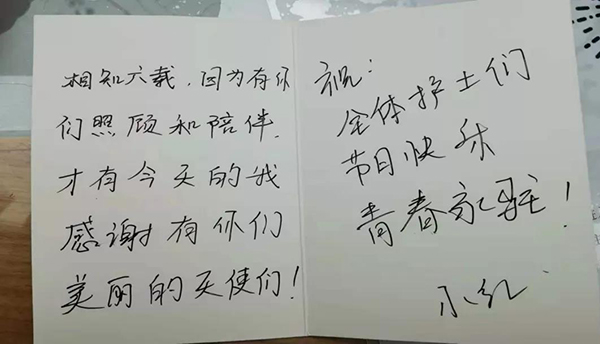 相知六载，因为有你
们照顾和陪伴.
才有今天的我
感谢有你们
美丽的天使们！
祝：
全体护士们
节日快乐
青春永驻！
小红